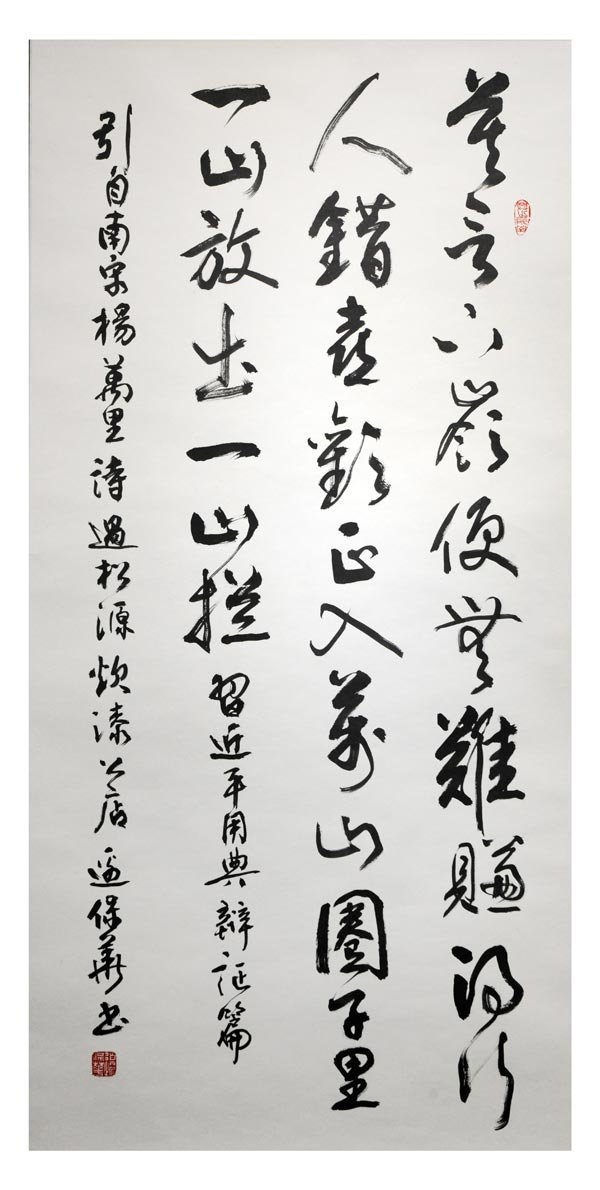 莫言下嶺便無難賺得行
人錯喜歡正入萬山圈子里
一山放出一山攔 習近平用典辯证篇
引自南宋楊萬里詩過松源炊漆公店 保華书